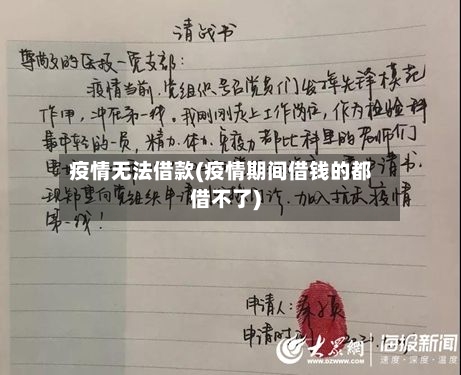 请战书
尊敬的医技一党支部:
疫情当前,党组织号召党员们发挥先锋模范
作用,冲在第一线。我刚刚走上工作岗位,作为检验科
最年轻的一员,精力、体力、免疫力都比科里的老师们
疫情无法借款(疫情期间借钱的都
借不了)
请书,
现郑重向党组织申请
加入抗击疫情
第一线!
申请人:
申请时
大众网
www.dzwww.com
海报新闻
速度·深度·温度